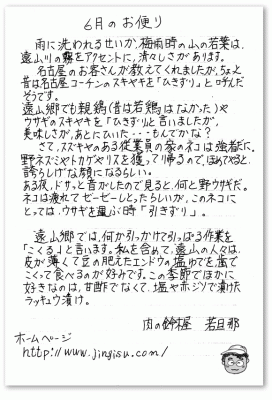 6月のお便り
雨に洗われるせいか、梅雨時の山の若葉は、
遠山川の霧をアクセントに、清々しさがあります。
名古屋のお客さんが教えてくれましたが、ちょっと
昔は名古屋コーチンのスキヤキを「ひきずり」と呼んだ
そうです。
遠山郷でも親鶏(昔は若鶏はなかった)や
ウサギのスキヤキを「ひきずり」と言いましたが、
美味しさが、あとにひいた・・・もんでかな?
さて、スズキヤのある従業員の家のネコは強者に、
野ネズミやトカゲやリスを獲って帰るので、ほめてやると、
誇らしげな顔になるらしい。
ある夜、ドサッと音がしたので見ると、何と野ウサギだ。
ネコは疲れてゼーゼーしとったらしいが、このネコに
とっては、ウサギを運ぶ時「引きずり」。
遠山郷では、何か引っかけて引っぱる作業を
「こくる」と言います。私を含めて、遠山の人々は、
皮が薄くて豆の肥えたエンドウの塩ゆでを歯で
こくって食べるのが好みです。この季節でほかに
好きなのは、甘酢でなくて、塩や赤ジソで漬けた
ラッキョウ漬け。
肉の鈴木屋 若旦那
ホームページ
http://www.jingisu.com/